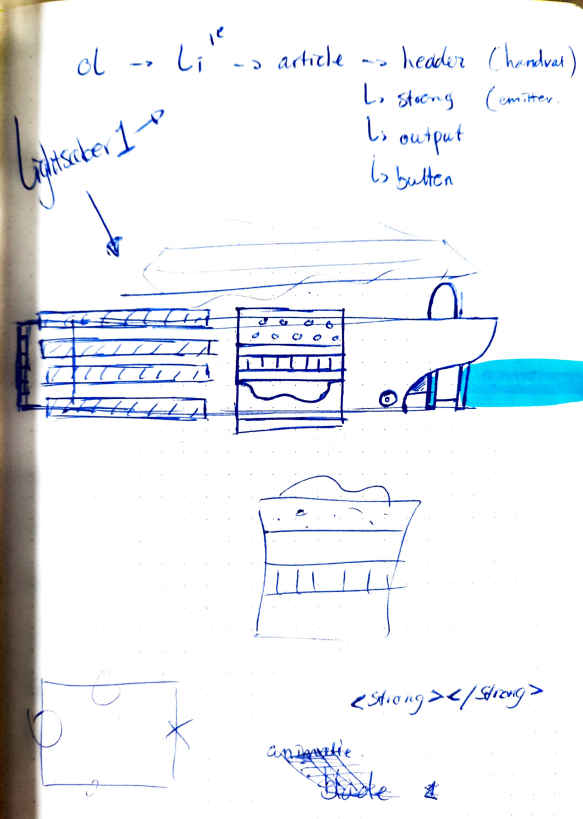 ol → Li 1e → article → header (handvat)
↳ strong (emitter.
↳ output
↳ button
Lightsaber 1 →
<strong></strong>
animatie.
blade